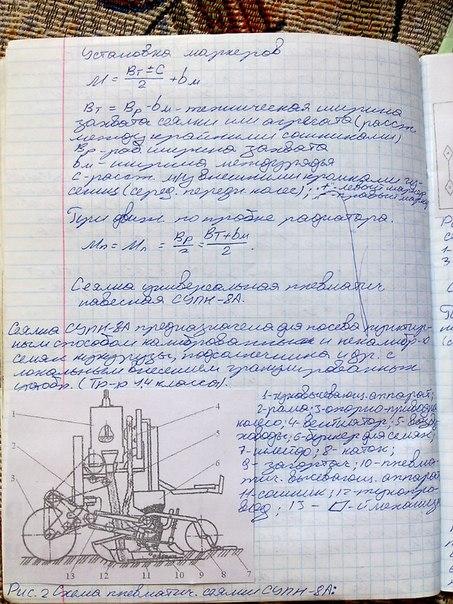 Установка маркеров
M = Bт ± C / 2 + bм
Bт = Bр - bм - техническая ширина
захвата сеялки или агрегата (расст.
между крайними сошниками)
Bр - раб. ширина захвата
bм - ширина междурядья
С - расст. м/у внешними кромками гу-
сениц (серед. передн. колес), "+" - левый маркер
"-" - правый маркер
При движ. по пробке радиатора.
Mп = Mл = Bр / 2 = Bт + bм / 2 .
Сеялка универсальная пневматич.
навесная СУПН-8А.
Сеялка СУПН-8А предназначена для посева пунктир-
ным способом калиброванных и некалибр-х
семян кукурузы, подсолнечника и др. с
локальным внесением гранулированных
удобр. (Тр-р 1,4 класса).
1 - туковысевающ. аппарат;
2 - рама; 3 - опорно-приводное
колесо; 4 - вентилятор; 5 - возду-
ховоды; 6 - бункер для семян;
7 - шлейф; 8 - каток;
9 - загортач; 10 - пневма-
тич. высевающ. аппарат
11 - сошник; 12 - тукопро-
вод; 13 - механизм
1 2 3 4 5 6
13 12 11 10 9 8 7
Рис. 2 Схема пневматич. сеялки СУПН-8А: